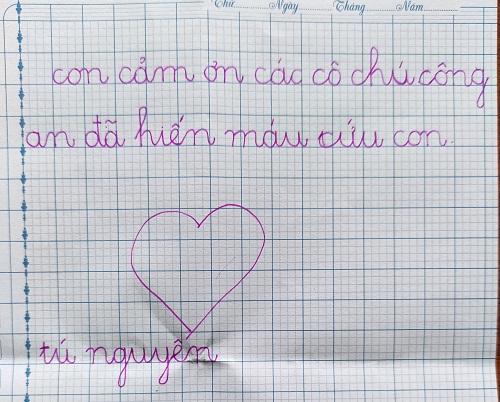 Thứ Ngày Tháng Năm
con cảm ơn các cô chú công
an đã hiến máu cứu con
tú nguyên